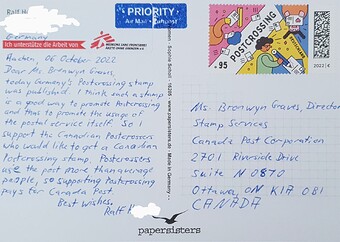 Ralf H
Germany
Ich unterstütze die Arbeit von
MEDECINS SANS FRONTIERES
ÄRZTE OHNE GRENZEN e.V.
PRIORITY
Air Mail • Luftpost
POSTCROSSING
95
2022
06 October 2022
Dear Ms. Bronwyn Graves,
today Germany's Postcrossing stamp
was published. I think such a stamp
is a good way to promote Postcrossing
and thus to promote the usage of
the postal service itself. So I
support the Canadian Postcrossers
who would like to get a Canadian
Postcrossing stamp. Postcrossers
use the post more than average
people, so supporting Postcrossing
pays for Canada Post.
Best wishes,
Ralf H
Ms. Bronwyn Graves, Director
Stamp Services
Canada Post Corporation
2701 Riverside Drive
Suite N0870
Ottawa, ON K1A 0B1
CANADA
www.papersisters.de • Made in Germany
papersisters